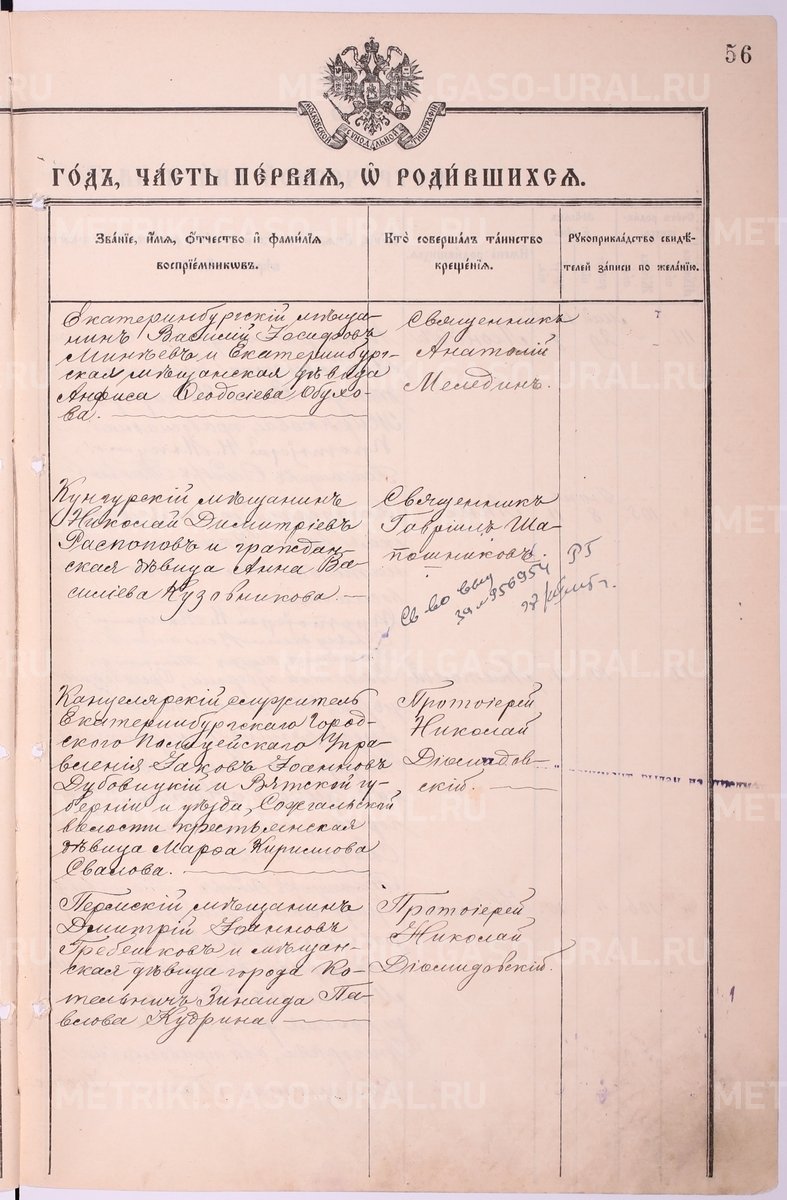 56
МОСКОВСКОЙ СѴНОДАЛЬНОЙ ТИПОГРАФІИ
ГО́ДЪ, ЧА́СТЬ ПЕ́РВАЯ, Ѡ҆ РОДИ́ВШИХСЯ.
Зва́нїе, и҆́мѧ, ѻ҆́тчество и҆ фами́лїѧ
воспрїе́мникѡвъ.
Кто̀ соверша́лъ та́инство
креще́нїѧ.
Рꙋкоприкла́дство свидѣ́-
телей за́писи по жела́нїю.
Екатеринбургскій мѣща-
нинъ Василій Іосифовъ
Минѣевъ и Екатеринбург-
ская мѣщанская дѣвица
Анфиса Ѳеодосіева Обухо-
ва.
Священникъ
Анатолій
Мелединъ.
Кунгурскій мѣщанинъ
Николай Димитріевъ
Распоповъ и граждан-
ская дѣвица Анна Ва-
силіева Кузовникова.
Священникъ
Гавріилъ Ша-
пошниковъ.
Св во выд
956954
РГ
Канцелярскій служитель
Екатеринбургскаго Город-
ского Полицейскаго Упра-
вленія Іаковъ Іоанновъ
Дубовицкій и Вятской гу-
берніи и уѣзда,
волости крестьянская
дѣвица Марѳа Кириллова
Свалова.
Протоіерей
Николай
Діомидов-
скій.
Пермскій мѣщанинъ
Дмитрій Іоанновъ
Гребешковъ и мѣщан-
ская дѣвица города Ко-
тельничъ Зинаида Па-
влова Кудрина
Протоіерей
Николай
Діомидовскій.
METRIKI.GASO-URAL.RU